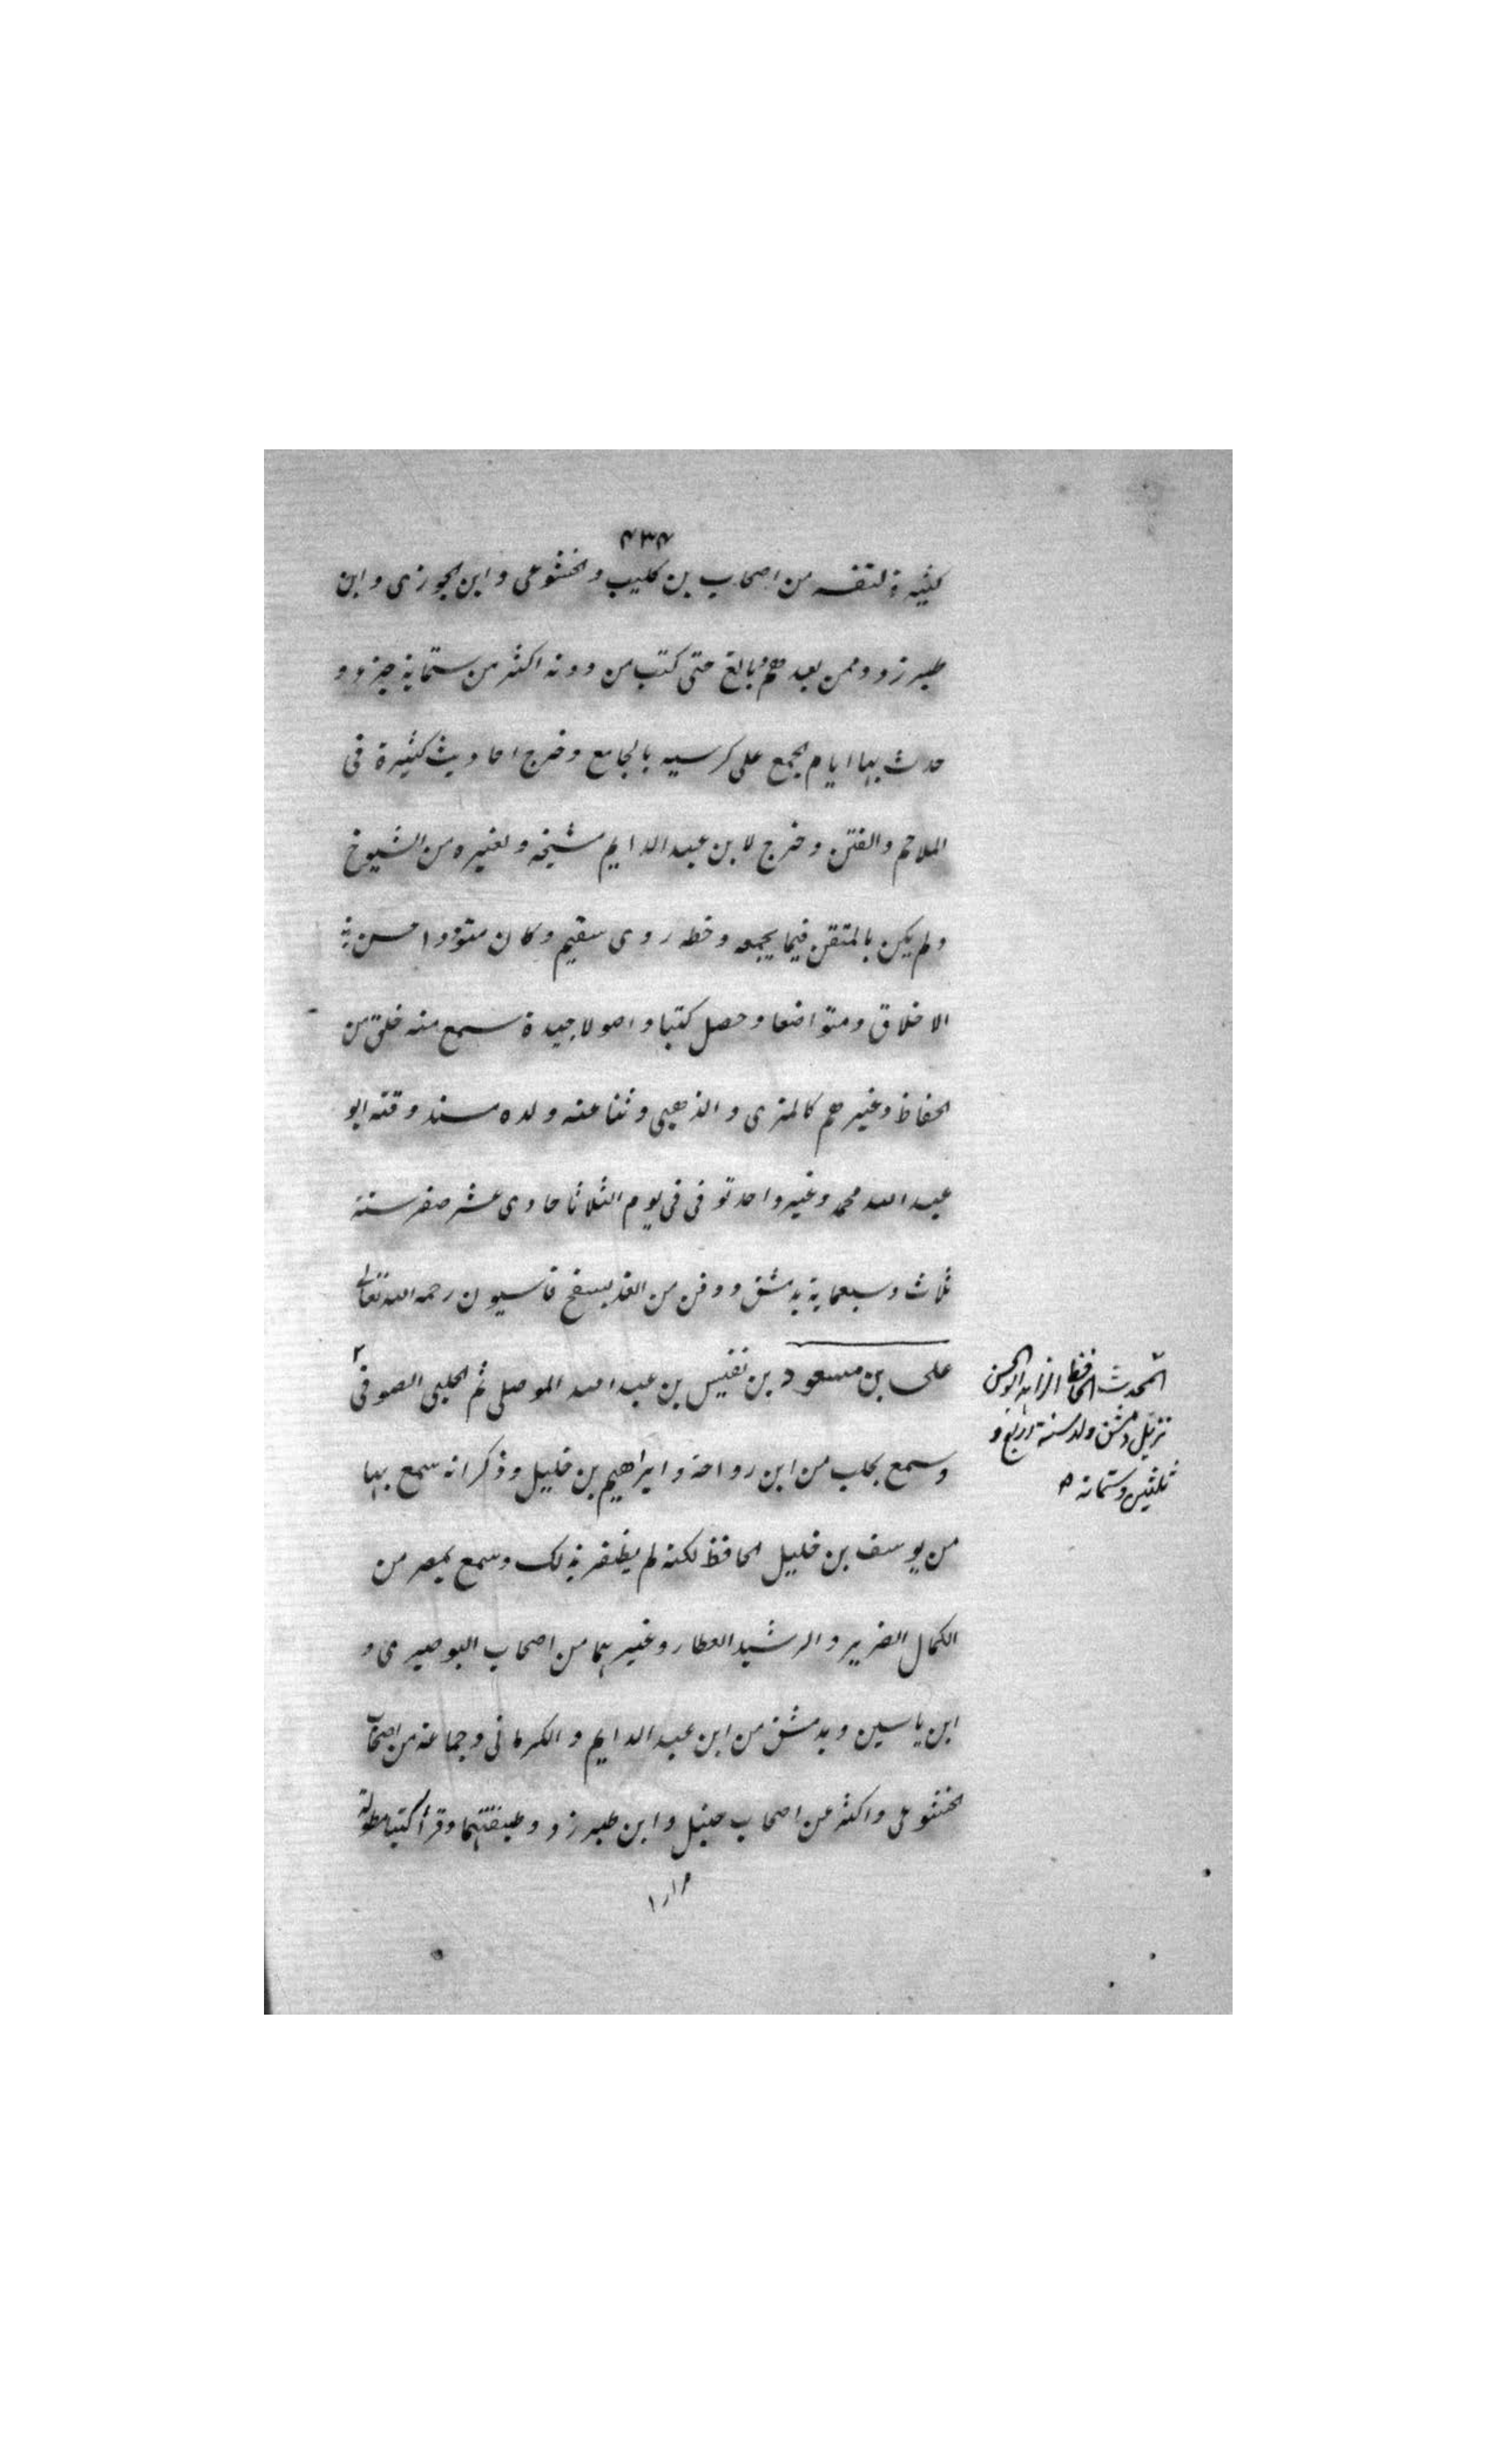 ٤٣٤
كثيرة لنفسه من اصحاب بن كليب والخشوعى وابن الجوزى وابن
طبرزد وممن بعدهم وبالغ حتى كتب من دونه اكثر من ستماية جزء و
حدث بها ايام الجمع على كرسيه بالجامع وخرج احاديث كثيرة فى
الملاحم والفتن وخرج لابن عبد الدايم مشيخه ولغيره من الشيوخ
ولم يكن بالمتقن فيما يجمعه وخطه ردى سقيم وكان متوددا حسن
الاخلاق ومتواضعا وحصل كتبا واصولا جيدة سمع منه خلق من
الحفاظ وغيرهم كالمزى والذهبى وثنا عنه ولده مسند وقته ابو
عبد الله محمد وغير واحد توفى فى يوم الثلاثا حادى عشر صفر سنة
ثلاث وسبعماية بدمشق ودفن من الغد بسفح قاسيون رحمه الله تعالى
على بن مسعود بن نفيس بن عبد الله الموصلى ثم الحلبى الصوفى
المحدث الحافظ الزاهد ابو الحسن
نزيل دمشق ولد سنة اربع و
ثلثين وستمائه
وسمع بحلب من ابن رواحة وابراهيم بن خليل وذكر انه سمع بها
من يوسف بن خليل الحافظ لكنه لم يظفر بذلك وسمع بمصر من
الكمال الضرير والرشيد العطار وغيرهما من اصحاب البوصيرى و
ابن ياسين وبدمشق من ابن عبد الدايم والكرمانى وجماعة من اصحاب
الخشوعى واكثر عن اصحاب حنبل وابن طبرزد وطبقتهما وقرأ كتبا مطولة
مرارا